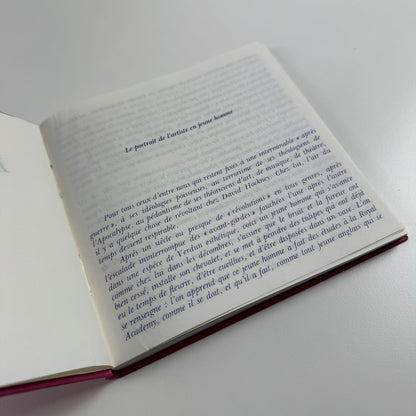 Le portrait de l'artiste en jeune homme
Pour tous ceux d'entre nous qui restent fixés à une interminable « après
guerre », à ses idéologues pausseuses, au terrorisme de ses théologiens de
l'Apocalypse, au pédantisme de ses théoriciens d'art, de musique, de théâtre,
il y a quelque chose de révoltant chez David Hockney. Chez lui, l'air du
temps devient respirable.
Après un siècle ou presque de « révolutions » en tous genres, après
l'escalade ininterrompue des « avant-gardes » fauchées l'une après l'autre
dans une espèce de Verdun esthétique, voici un jeune homme qui s'avance
comme chez lui dans les décombres, et, sans que le bruit et la fureur aient
bien cessé, installe son chevalet, et se met à peindre des tulipes qui ont déjà
eu le temps de fleurir, d'être cueillies, et d'être disposées dans un vase. L'on
se renseigne : l'on apprend que ce jeune homme a fait des études à la Royal
Academy, comme il se doit, et qu'il a fait, comme tout jeune anglais qui se